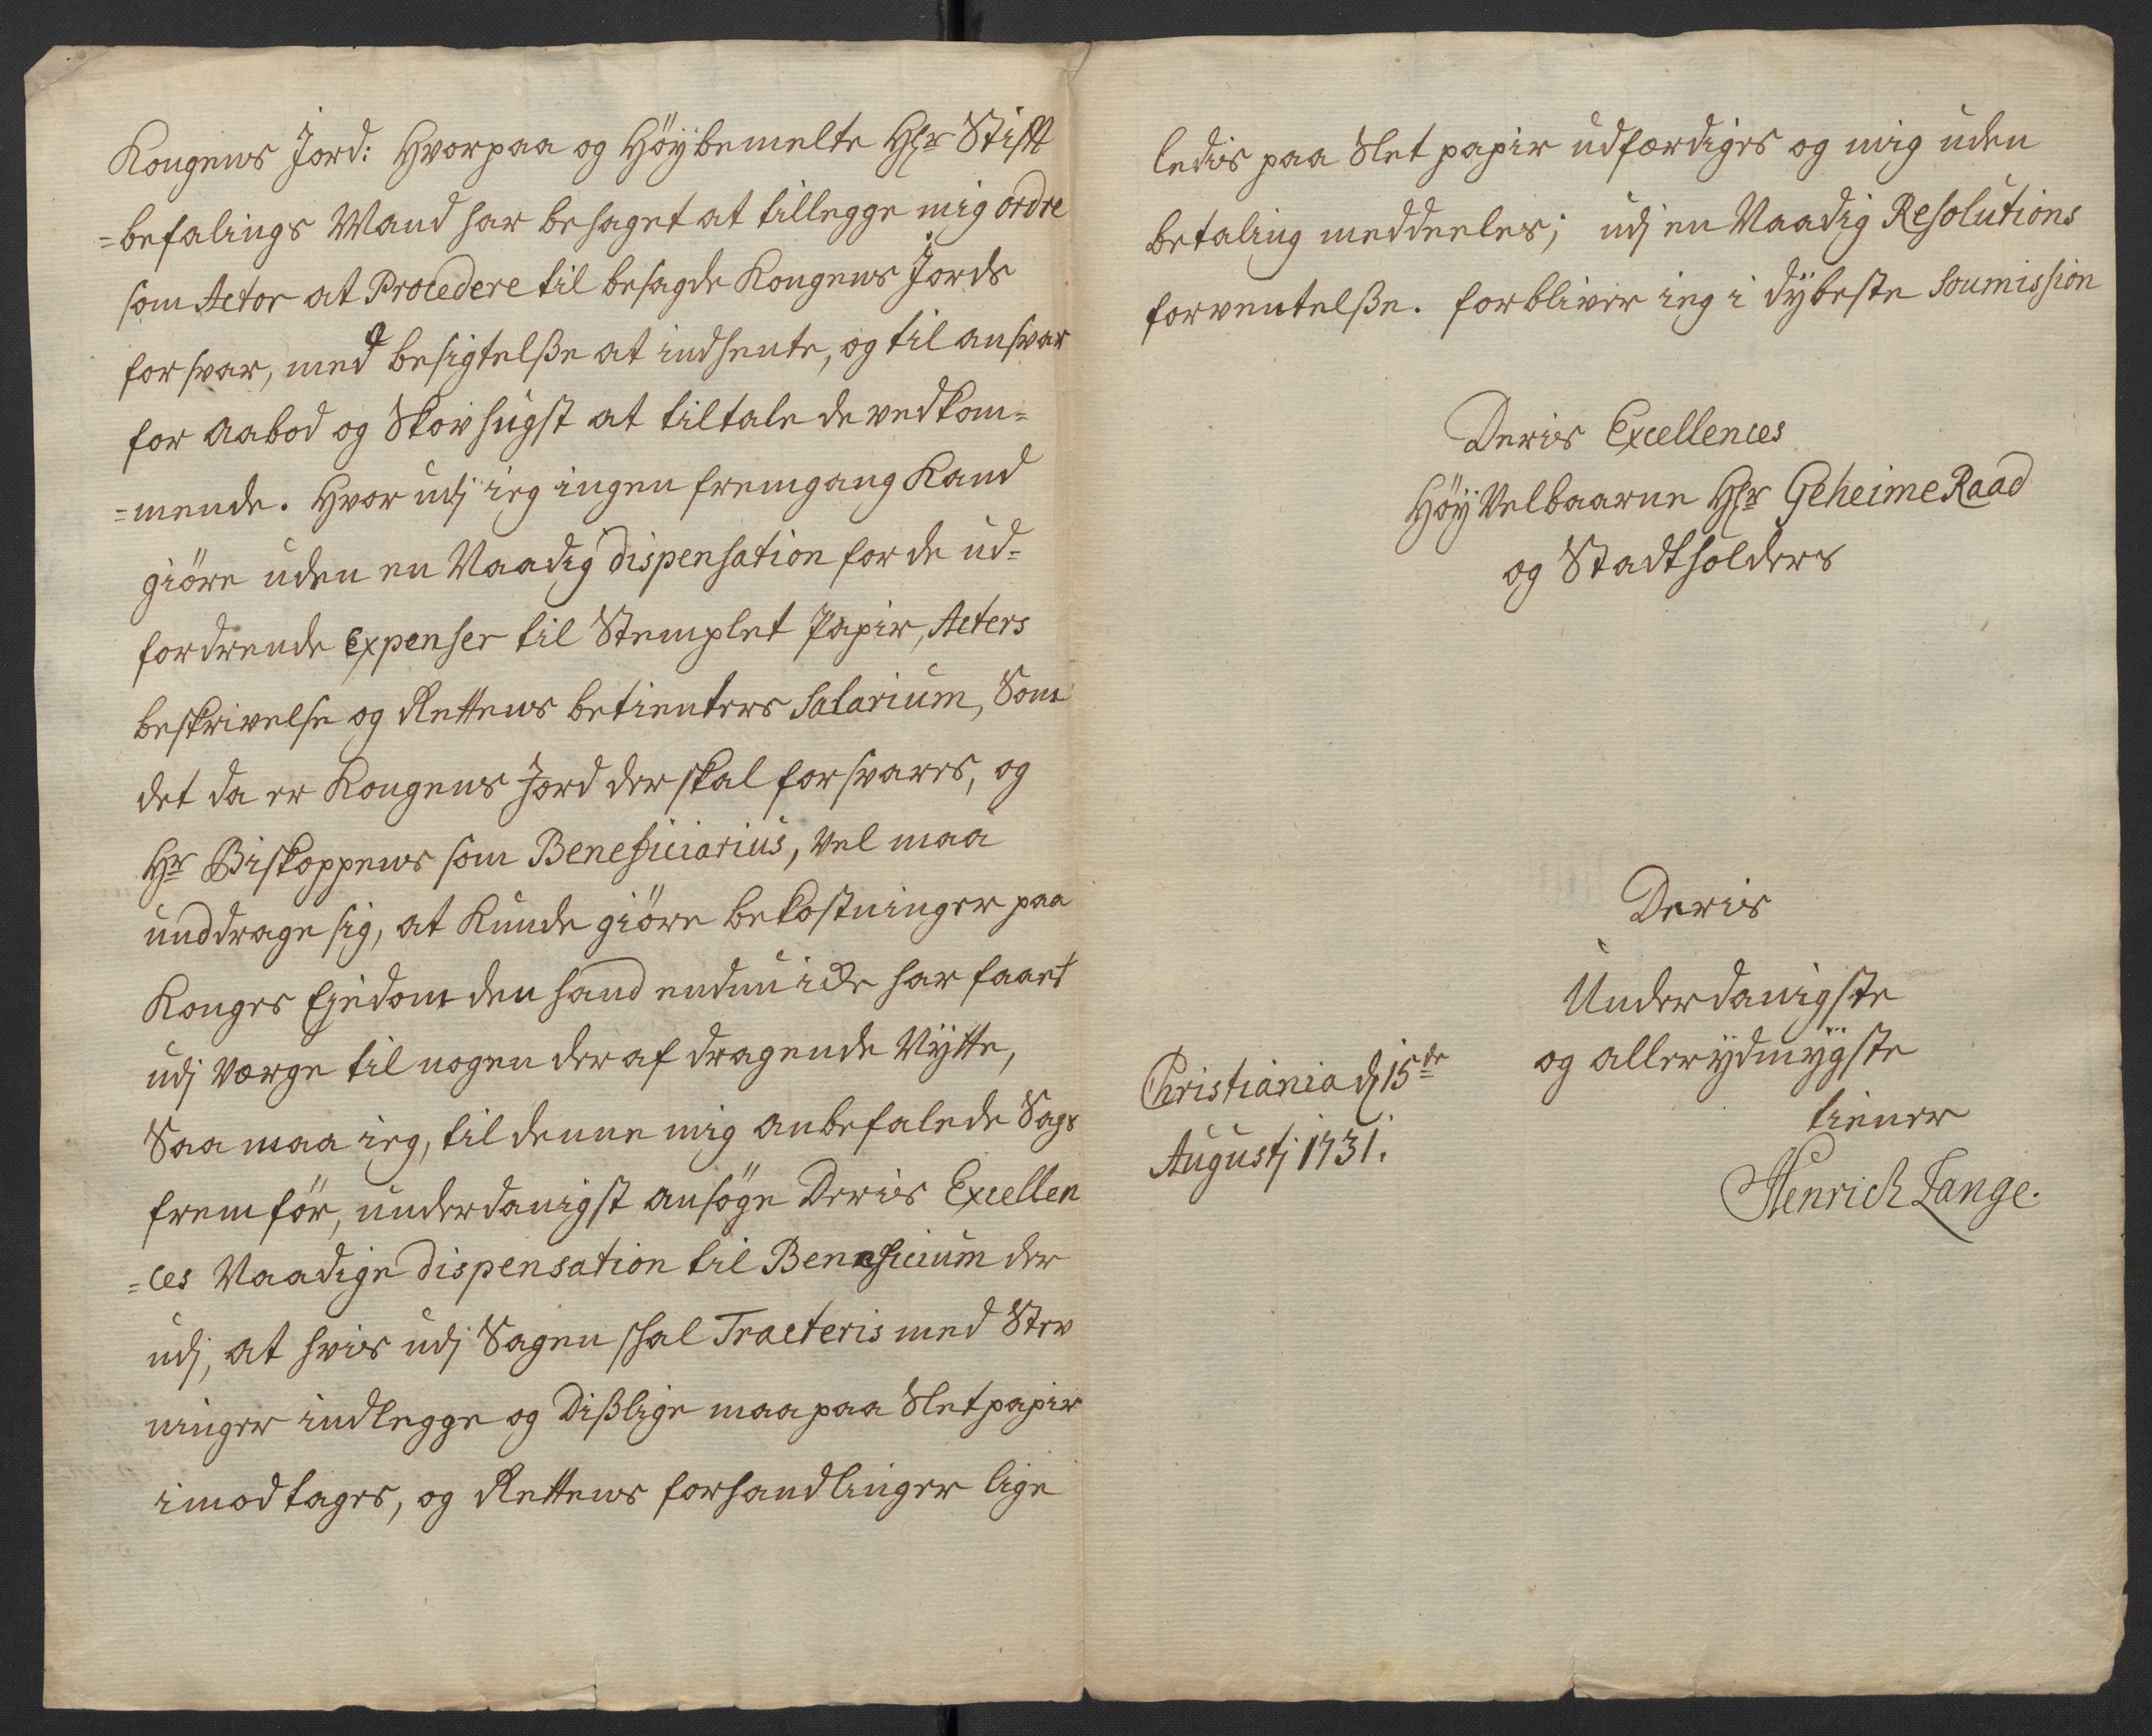 Kongens Jord: Hvorpaa og Höybemelte Hr Stift
=befalings Mand har behaget at tillegge mig ordre
som Actor at Procedere til besagde Kongens Jords
forsvar, med besigtelße at indhente, og til ansvar
for Aabod og Skovhugst at tiltale de vedkom=
=mende. Hvor udj ieg ingen fremgang Kand
giöre uden en Naadig dispensation for de ud=
fordrende Expenser til Stemplet Papir, Acters
beskrivelse og Rettens betienters Salarium, Som
det da er Kongens Jord der skal forsvares, og
Hr Biskoppens som Beneficiarius, vel maa
unddrage sig, at Kunde giöre bekostninger paa
Konges Ejedom den hand endnu icke har faaet
udj Værge til nogen deraf dragende Nÿtte,
Saa maa ieg, til denne mig anbefalede Sags
fremför, underdanigst ansöge Deris Excellen
=ces Naadige dispensation til Beneficium der
udj, at hvis udj Sagen skal Tracteris med Stev
ninger indlegge og dißlige maa paa Slet papir
imodtages, og Rettens forhandlinger lige
ledis paa Slet papir udfærdiges og mig uden
betaling meddeeles; udj en Naadig Resolutions
forventelße. forbliver ieg i dÿbeste Soumission
Deris Excellences
HöÿVelbaarne Hr Geheime Raad
og Stadtholders
Deris
Underdanigste
og allerÿdmÿgste
tiener
Henrich Lange.
Christiania d 15de
Augustj 1731.